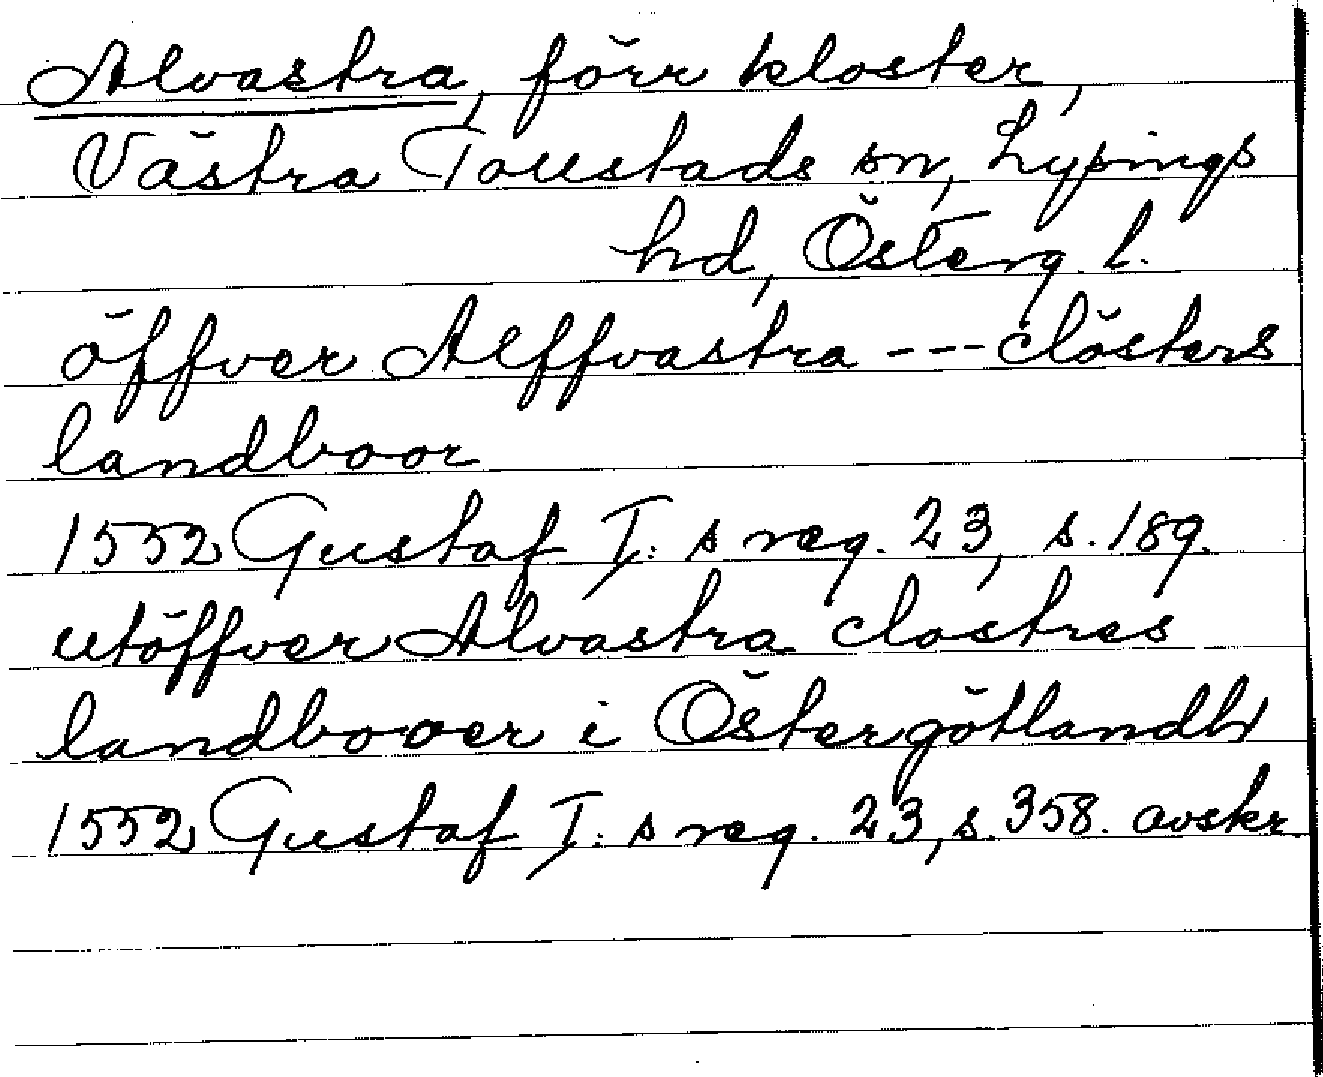 Alvastra, förr kloster,
Västra Tollstads sn, Lysings
hd, Österg l.
öffver Alffvastra --- clösters
landboor
1552 Gustaf I: s reg. 23, s. 189.
utöffver Alvastra clostres
landbooer i Östergötlandh
1552 Gustaf I: s reg. 23, s. 358. avskr.